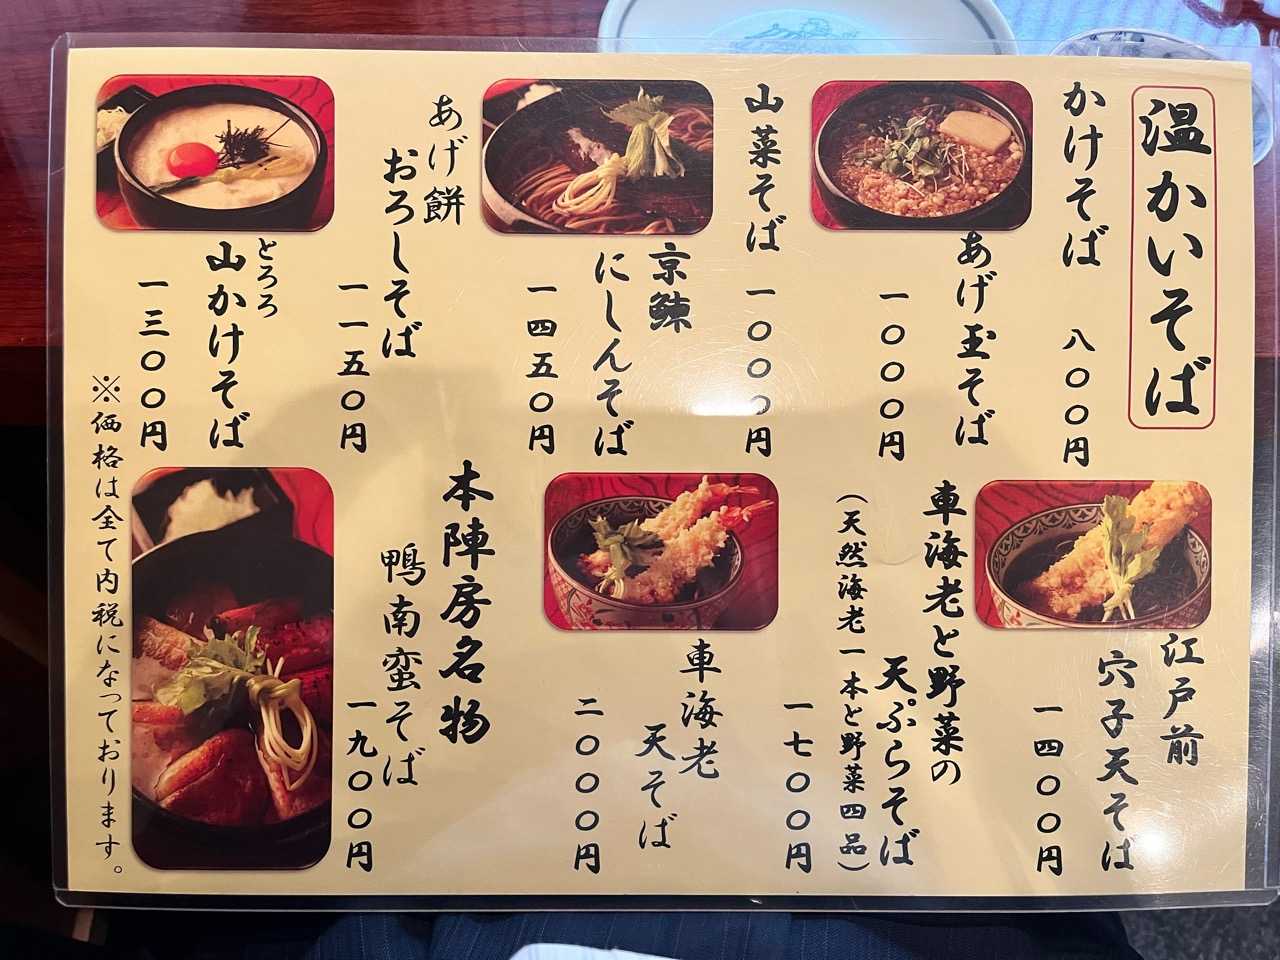 温かいそば
かけそば 八〇〇円
あげ玉そば
一〇〇〇円
山菜そば 一〇〇〇円
京鰊
にしんそば
一四五〇円
あげ餅
おろしそば
一一五〇円
とろろ
山かけそば
一三〇〇円
江戸前
穴子天そば
一四〇〇円
車海老と野菜の
天ぷらそば
(天然海老一本と野菜四品)
一七〇〇円
車海老
天そば
二〇〇〇円
本陣房名物
鴨南蛮そば
一九〇〇円
※価格は全て内税になっております。